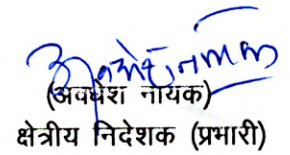 (अवधेश नायक)
क्षेत्रीय निदेशक (प्रभारी)